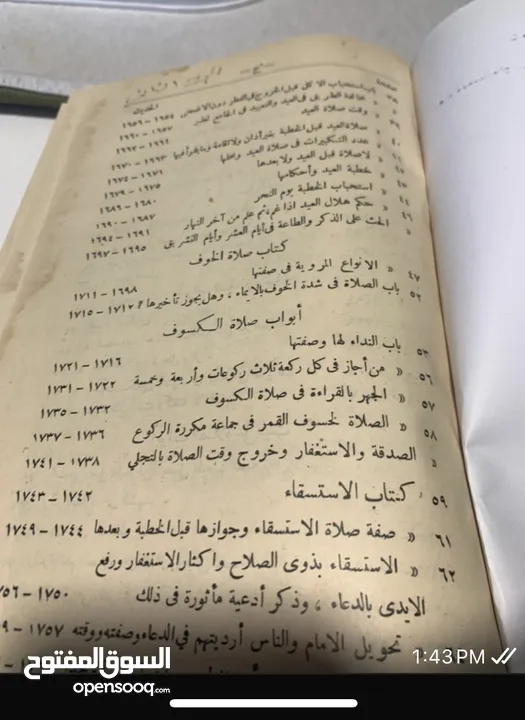 صفحة الحديث
باب استحباب الاكل قبل الخروج فى الفطر دون الاضحى ١٦٥٤ - ١٦٥٦
« مخالفة الطريق فى العيد والتعييد فى الجامع لعذر ١٦٥٧ - ١٦٦٠
« وقت صلاة العيد
« صلاة العيد قبل الخطبة بغير أذان ولا اقامة وما يقرأ فيها
« عدد التكبيرات فى صلاة العيد ومحلها
« لاصلاة قبل العيد ولا بعدها ١٦٧١ - ١٦٧٤
« خطبة العيد وأحكامها ١٦٧٥ - ١٦٧٩
« استحباب الخطبة يوم النحر ١٦٨٠ - ١٦٨٦
« حكم هلال العيد اذا غم ثم علم من آخر النهار ١٦٨٧ - ١٦٩٠
٤٦ « الحث على الذكر والطاعة فى أيام العشر وأيام التشريق ١٦٩١ - ١٦٩٤
١٦٩٥ - ١٦٩٧
كتاب صلاة الخوف
٤٧ « الانواع المروية فى صفتها ١٦٩٨ - ١٧١١
٥٢ باب الصلاة فى شدة الخوف بالايماء ، وهل يجوز تأخيرها ؟ ١٧١٢ - ١٧١٥
أبواب صلاة الكسوف
٥٣ باب النداء لها وصفتها ١٧١٦ - ١٧٢١
٥٦ « من أجاز فى كل ركعة ثلاث ركوعات وأربعة وخمسة ١٧٢٢ - ١٧٣١
٥٧ « الجهر بالقراءة فى صلاة الكسوف ١٧٣٢ - ١٧٣٥
٥٨ « الصلاة لخسوف القمر فى جماعة مكررة الركوع ١٧٣٦ - ١٧٣٧
« الصدقة والاستغفار وخروج وقت الصلاة بالتجلي ١٧٣٨ - ١٧٤١
٥٩ كتاب الاستسقاء ١٧٤٢ - ١٧٤٣
٦١ « صفة صلاة الاستسقاء وجوازها قبل الخطبة وبعدها ١٧٤٤ - ١٧٤٩
٦٢ « الاستسقاء بذوى الصلاح واكثار الاستغفار ورفع
الايدى بالدعاء ، وذكر أدعية مأثورة فى ذلك ١٧٥٠
تحويل الامام والناس أرديتهم فى الدعاء وصفته ووقته ١٧٥٧
1:43 PM
السوق المفتوح
opensooq.com